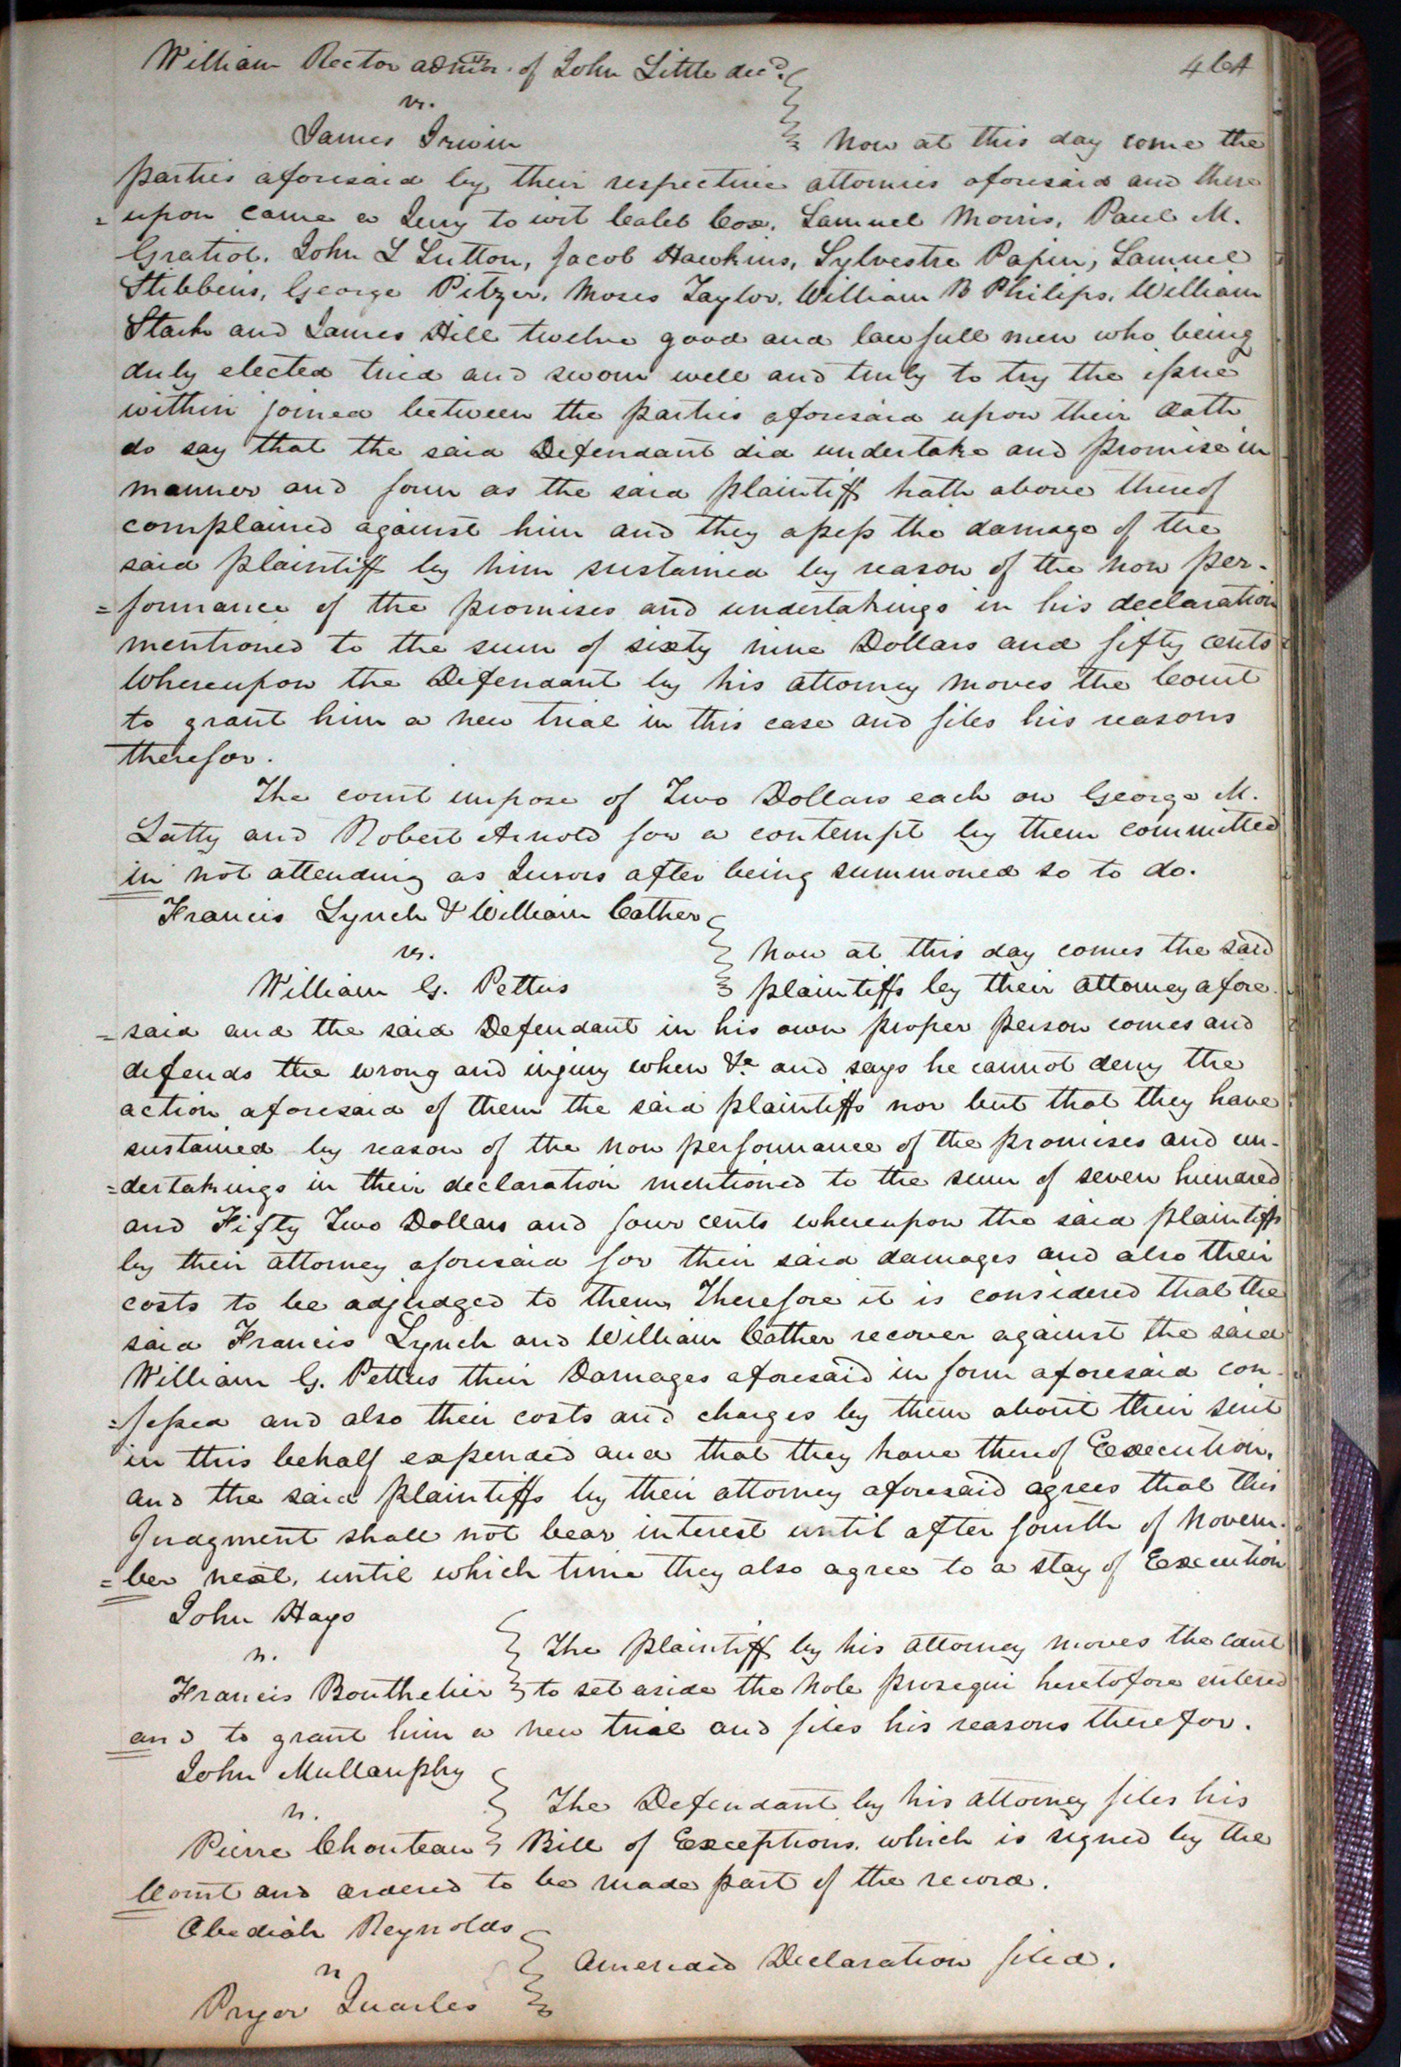 William Rector admr. of John Little decd.
464
vs.
James Irwin
Now at this day come the
parties aforesaid by their respective attornies aforesaid and there
=upon came a Jury to wit Caleb Cox, Samuel Morris, Paul M.
Gratiot, John L Sutton, Jacob Hawkins, Sylvestre Papin, Samuel
Stibbens, George Pitzer, Moses Taylor, William B Philips, William
Stark and James Hill twelve good and lawfull men who being
duly elected tried and sworn well and truly to try the issue
within joined between the parties aforesaid upon their oath
do say that the said Defendant did undertake and promise in
manner and form as the said plaintiff hath above thereof
complained against him and they assess the damage of the
said plaintiff by him sustained by reason of the non per-
=formance of the promises and undertakings in his declaration
mentioned to the sum of sixty nine Dollars and fifty cents
Whereupon the Defendant by his attorney moves the Court
to grant him a new trial in this case and files his reasons
therefor.
The court impose of Two Dollars each on George M.
Latty and Robert Arnold for a contempt by them committed
in not attending as Jurors after being summoned so to do.
Francis Lynch & William Cather
vs.
Now at this day comes the said
William G. Pettus
plaintiffs by their attorney afore-
=said and the said Defendant in his own proper person comes and
defends the wrong and injury when &c and says he cannot deny the
action aforesaid of them the said plaintiffs nor but that they have
sustained by reason of the non performance of the promises and un-
=dertakings in their declaration mentioned to the sum of seven hundred
and Fifty Two Dollars and four cents whereupon the said plaintiffs
by their attorney aforesaid for their said damages and also their
costs to be adjudged to them, Therefore it is considered that the
said Francis Lynch and William Cather recover against the said
William G. Pettus their Damages aforesaid in form aforesaid con-
=fessed and also their costs and charges by them about their suit
in this behalf expended and that they have thereof Execution,
and the said plaintiffs by their attorney aforesaid agrees that this
Judgment shall not bear interest until after fourth of Novem-
=ber next, until which time they also agree to a stay of Execution
John Hays
vs.
The plaintiff by his attorney moves the court
Francis Bouthelier
to set aside the Nole prosequi heretofore entered
and to grant him a new trial and files his reasons therefor.
John Mullanphy
vs.
The Defendant by his attorney files his
Pierre Chouteau
Bill of Exceptions, which is signed by the
Court and ordered to be made part of the record.
Obediah Reynolds
vs
Amended Declaration filed.
Pryor Quarles